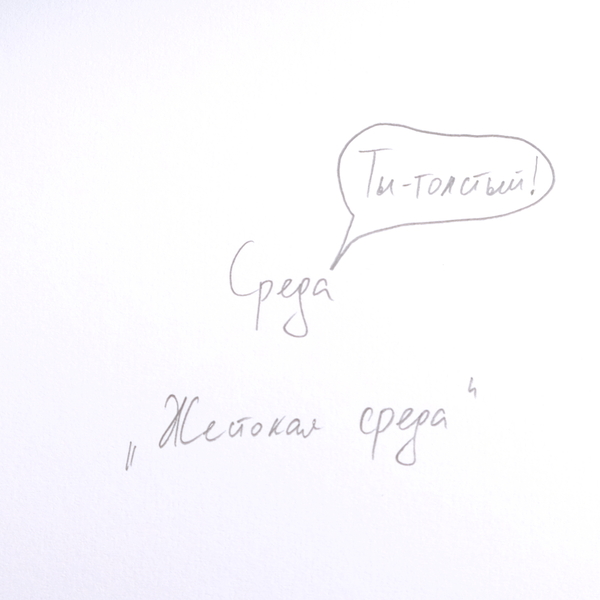 Ты-толстый!
Среда
„Жестокая среда“